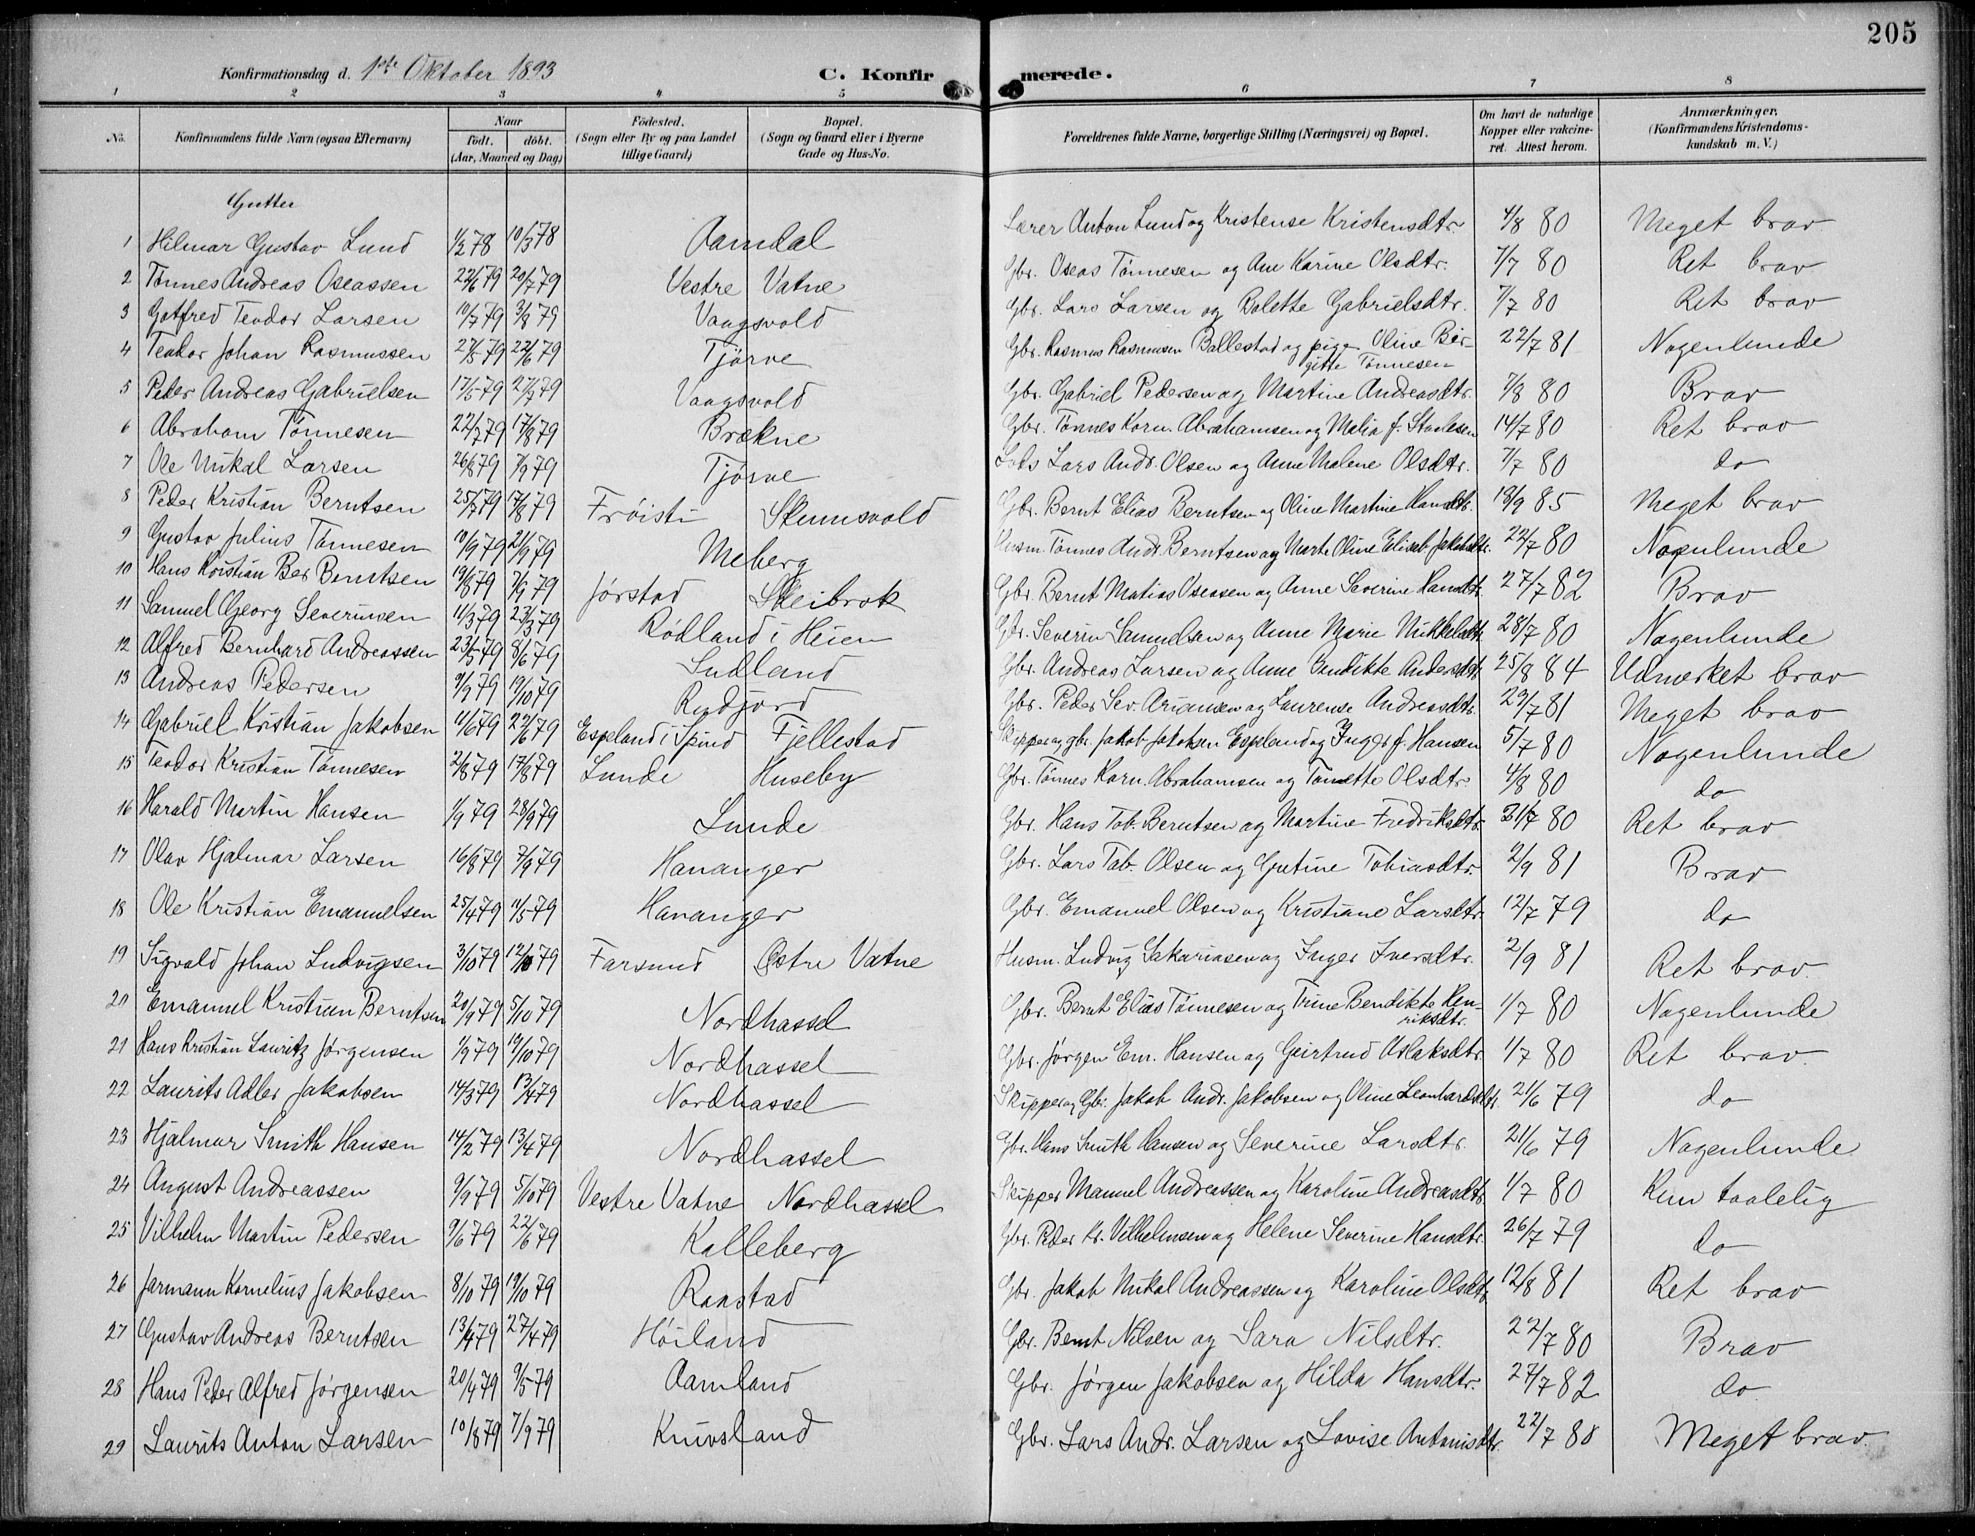 205
Konfirmationsdag d. 1ste Oktober 1893 C. Konfir merede.
1 2 3 4 5 6 7 8
No. Konfirmandens fulde Navn (ogsaa Efternavn) Naar født. døbt. (Aar, Maaned og Dag) Fødested. (Sogn eller By og paa Landet tillige Gaard) Bopæl. (Sogn og Gaard eller i Byerne Gade og Hus-No. Forældrenes fulde Navne, borgerlige Stilling (Næringsvei) og Bopæl. Om havt de naturlige Kopper eller vakcineret. Attest herom. Anmærkninger. (Konfirmandens Kristendomskundskab m. V.)
Gutter
1 Hilmar Gustav Lund 1/2 78 10/3 78 Aamdal Lærer Anton Lund og Kristense Kristensdtr. 4/8 80 Meget brav
2 Tønnes Andreas Oseassen 22/6 79 20/7 79 Vestre Vatne Gbr. Oseas Tønnesen og Ane Karine Olsdtr. 7/7 80 Ret brav
3 Gotfred Teodor Larsen 10/7 79 3/8 79 Vaagsvold Gbr. Lars Larsen og Bolette Gabrielsdtr. 7/7 80 Ret brav
4 Teodor Johan Rasmussen 27/5 79 22/6 79 Tjørve Gbr. Rasmus Rasmussen Ballestad og pige Oline Bergitte Tønnesen 22/7 81 Nogenlunde
5 Peder Andreas Gabrielsen 17/5 79 27/7 79 Vaagsvold Gbr. Gabriel Pedersen og Martine Andreasdtr. 7/8 80 Brav
6 Abraham Tønnesen 22/7 79 17/8 79 Brækne Gbr. Tønnes Korn. Abrahamsen og Malia f. Staalesen 14/7 80 Ret brav
7 Ole Mikal Larsen 26/8 79 7/9 79 Tjørve Lods Lars Andr. Olsen og Anne Malene Olsdtr. 7/7 80 do
8 Peder Kristian Berntsen 25/7 79 17/8 79 Frøisti Skeimsvold Gbr. Bernt Elias Berntsen og Oline Martine Hansdtr. 18/9 85 Meget brav
9 Gustav Julius Tønnesen 10/9 79 21/9 79 Meberg Husm. Tønnes Andr. Berntsen og Marte Oline Elisab. Jakobsdtr. 22/7 80 Nogenlunde
10 Hans Kristian Ber Berntsen 19/8 79 7/9 79 Jørstad Skeibrok Gbr. Bernt Matias Oseassen og Anne Severine Hansdtr. 27/7 82 Brav
11 Samuel Georg Severinsen 11/3 79 23/3 79 Rødland i Heien Gbr. Severin Samuelsen og Anne Marie Mikkelsdtr. 28/7 80 Nogenlunde
12 Alfred Bernhard Andreassen 23/5 79 8/6 79 Sudland Gbr. Andreas Larsen og Anne Bendikte Andersdtr. 25/8 84 Udmærket brav
13 Andreas Pedersen 9/9 79 19/10 79 Rudjord Gbr. Peder Sev. Ariansen og Laurense Andreasdtr. 29/7 81 Meget brav
14 Gabriel Kristian Jakobsen 11/6 79 22/6 79 Espeland i Spind Fjellestad Skipper og gbr. Jakob Jakobsen Espeland og Inger f. Hansen 5/7 80 Nogenlunde
15 Teodor Kristian Tønnesen 2/8 79 17/8 79 Lunde Huseby Gbr. Tønnes Korn. Abrahamsen og Tonette Olsdtr. 4/8 80 do
16 Harald Martin Hansen 1/9 79 28/9 79 Lunde Gbr. Hans Tob. Berntsen og Martine Fredriksdtr. 21/7 80 Ret brav
17 Olav Hjalmar Larsen 16/8 79 7/9 79 Hananger Gbr. Lars Tab. Olsen og Gutine Tobiasdtr. 2/9 81 Brav
18 Ole Kristian Emanuelsen 25/4 79 11/5 79 Hananger Gbr. Emanuel Olsen og Kristiane Larsdtr. 12/7 79 do
19 Sigvald Johan Ludvigsen 3/10 79 12/10 79 Farsund Østre Vatne Husm. Ludvig Sakariasen og Inger Iversdtr. 2/9 81 Ret brav
20 Emanuel Kristian Berntsen 20/9 79 5/10 79 Nordhassel Gbr. Bernt Elias Tønnesen og Trine Bendikte Henriksdtr. 1/7 80 Nogenlunde
21 Hans Kristian Lauritz Jørgensen 1/9 79 19/10 79 Nordhassel Gbr. Jørgen Em. Hansen og Geirtrud Aslaksdtr. 1/7 80 Ret brav
22 Laurits Adler Jakobsen 14/3 79 13/4 79 Nordhassel Skipper og Gbr. Jakob Andr. Jakobsen og Oline Leonhardsdtr. 21/6 79 do
23 Hjalmar Smith Hansen 14/2 79 13/4 79 Nordhassel Gbr. Hans Smith Hansen og Severine Larsdtr. 21/6 79 Nogenlunde
24 August Andreassen 9/9 79 5/10 79 Vestre Vatne Nordhassel Skipper Manuel Andreassen og Karoline Andreasdtr. 1/7 80 Kun taalelig
25 Vilhelm Martin Pedersen 9/6 79 22/6 79 Kalleberg Gbr. Peder Kr. Vilhelmsen og Helene Severine Hansdtr. 26/7 79 do
26 Jarmann Kornelius Jakobsen 8/10 79 19/10 79 Raastad Gbr. Jakob Mikal Andreassen og Karoline Olsdtr. 12/8 81 Ret brav
27 Gustav Andreas Berntsen 13/4 79 27/4 79 Høiland Gbr. Bernt Nilsen og Sara Nilsdtr. 22/7 80 Brav
28 Hans Peder Alfred Jørgensen 20/4 79 9/5 79 Aamland Gbr. Jørgen Jakobsen og Hilda Hansdtr. 27/7 82 do
29 Laurits Anton Larsen 10/8 79 7/9 79 Knivsland Gbr. Lars Andr. Larsen og Lovise Antonisdtr. 22/7 80 Meget brav.